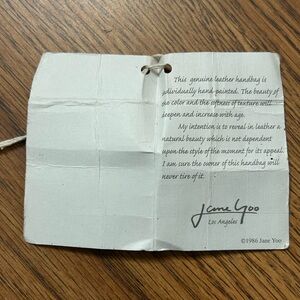 This genuine leather handbag is
individually hand-painted. The beauty of
the color and the softness of texture will
deepen and increase with age.
My intention is to reveal in leather a
natural beauty which is not dependent
upon the style of the moment for its appeal.
I am sure the owner of this handbag will
never tire of it.
Jane Yoo
Los Angeles
©1986 Jane Yoo